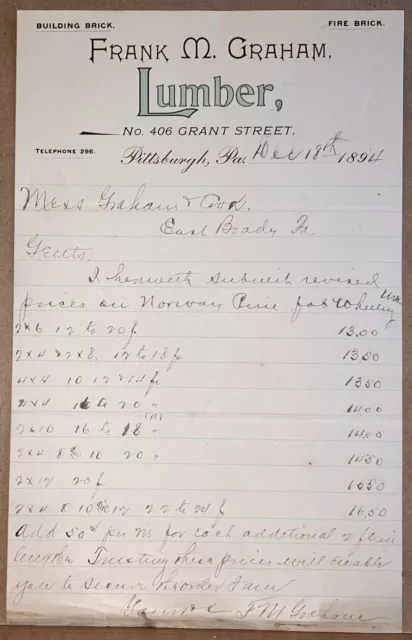 BUILDING BRICK.
FIRE BRICK.
FRANK M. GRAHAM,
Lumber,
No. 406 GRANT STREET,
TELEPHONE 296.
Pittsburgh, Pa. Dec 18th 1894
Mess Graham & Cook.
East Brady Pa.
Gents.
I herewith submit revised
prices on Norway Pine for Wheeling
2x6 12 to 20 f 13.00
2x4 & 2x8. 12 to 18 f 13.50
4x4 10 12 & 14 f 13.50
4x4 16 to 20 " 14.00
2x10 16 to 18 " 14.00
2x4 8 10 20 " 14.50
2x12 20 f 15.50
2x4 8 10 12 22 to 24 f 16.50
Add 50¢ per M for each additional 2 f in
length. Trusting these prices will enable
you to secure the order I am
Yours &c F M Graham